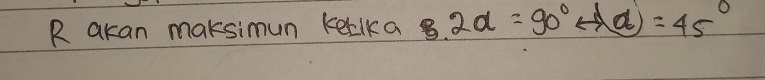 R akan maksimun ketika 2α = 90° ↔ α = 45°